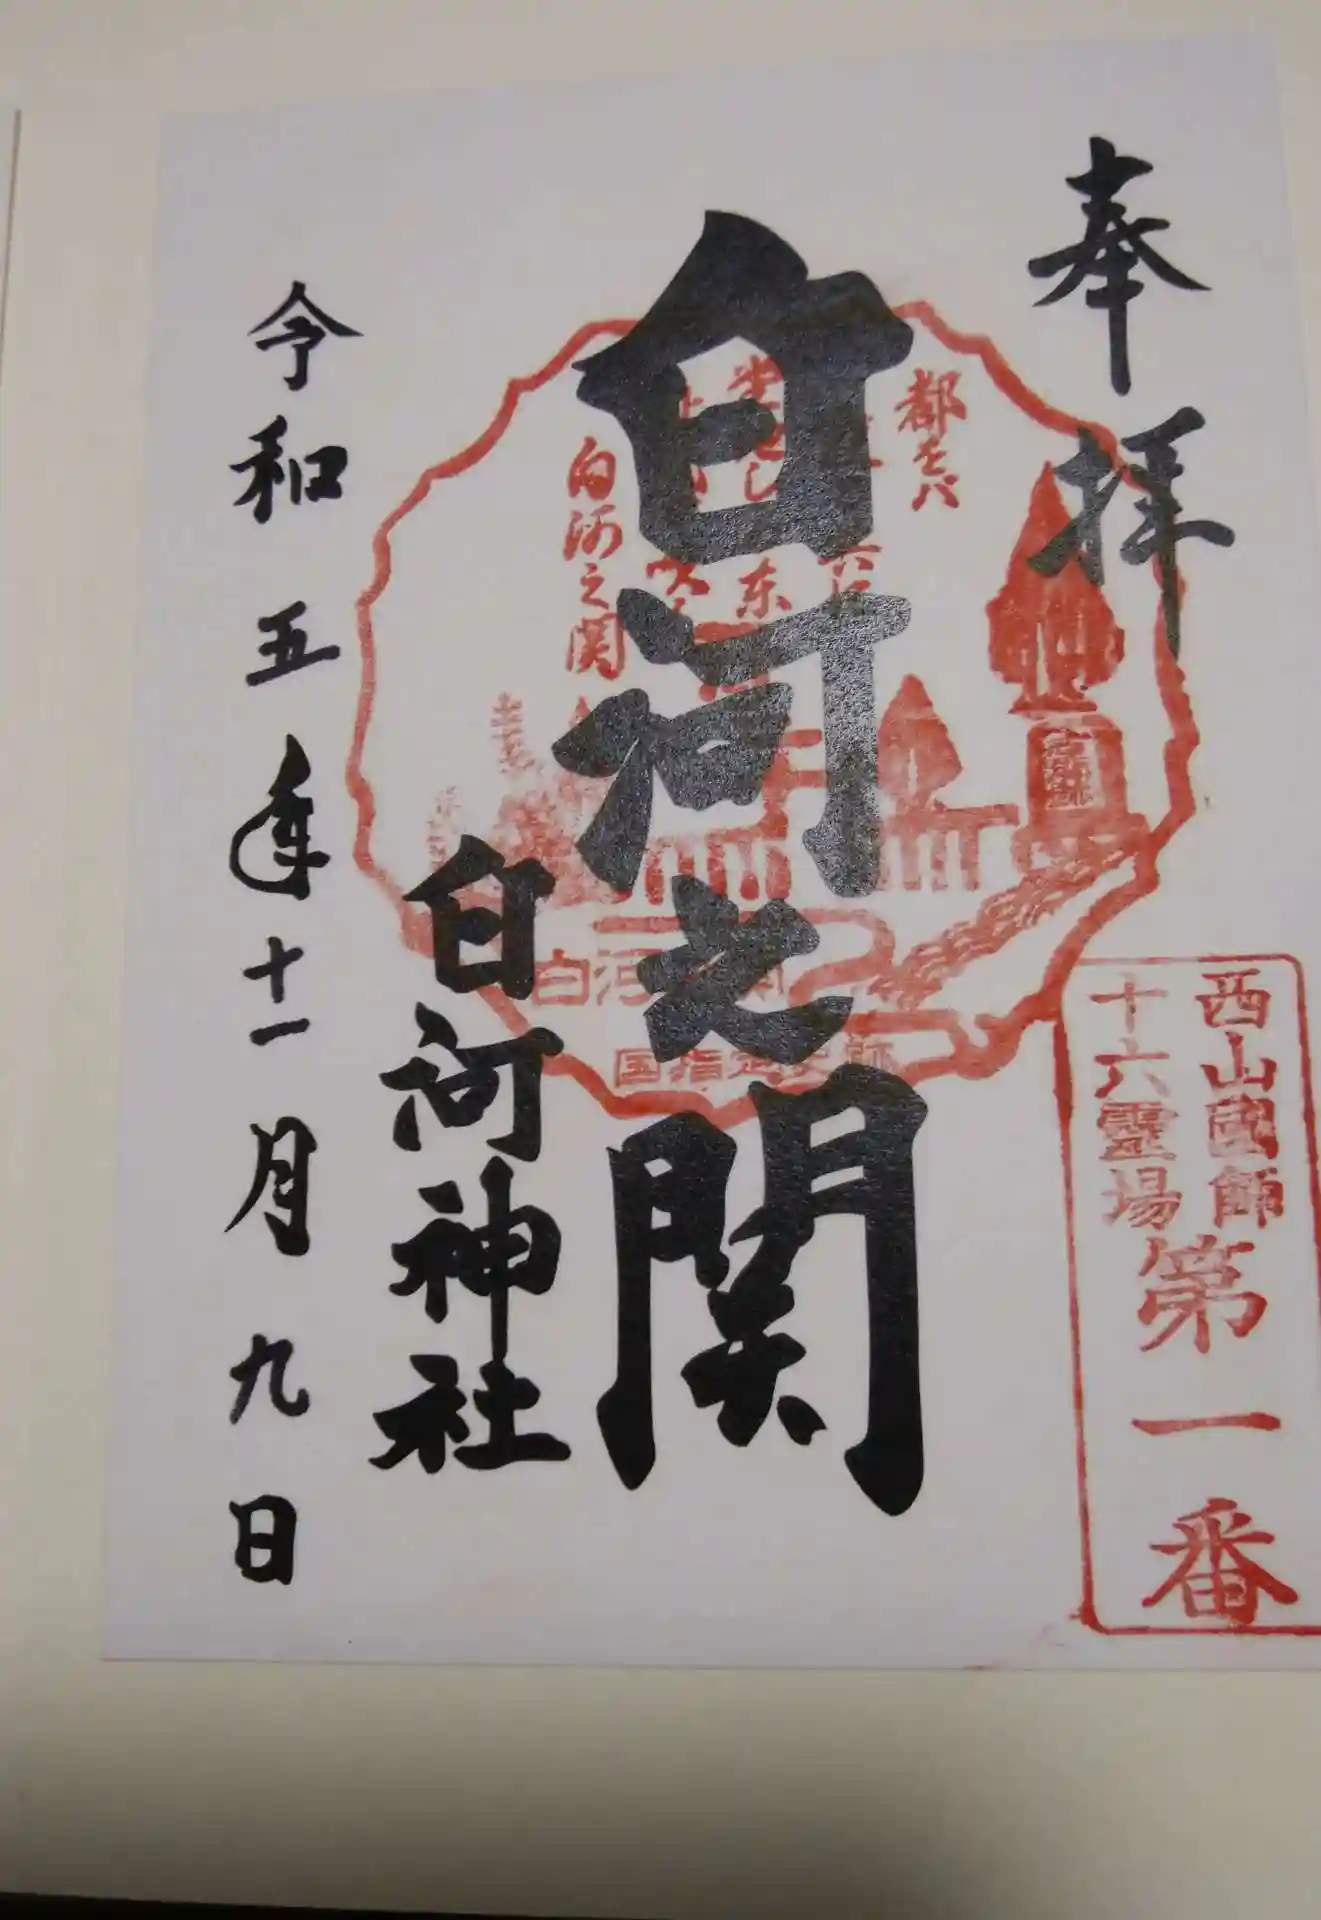 奉拝
白河之関
白河神社
令和五年十一月九日
都をバ
白河之関
国指定史跡
西山國師
十六霊場
第一番